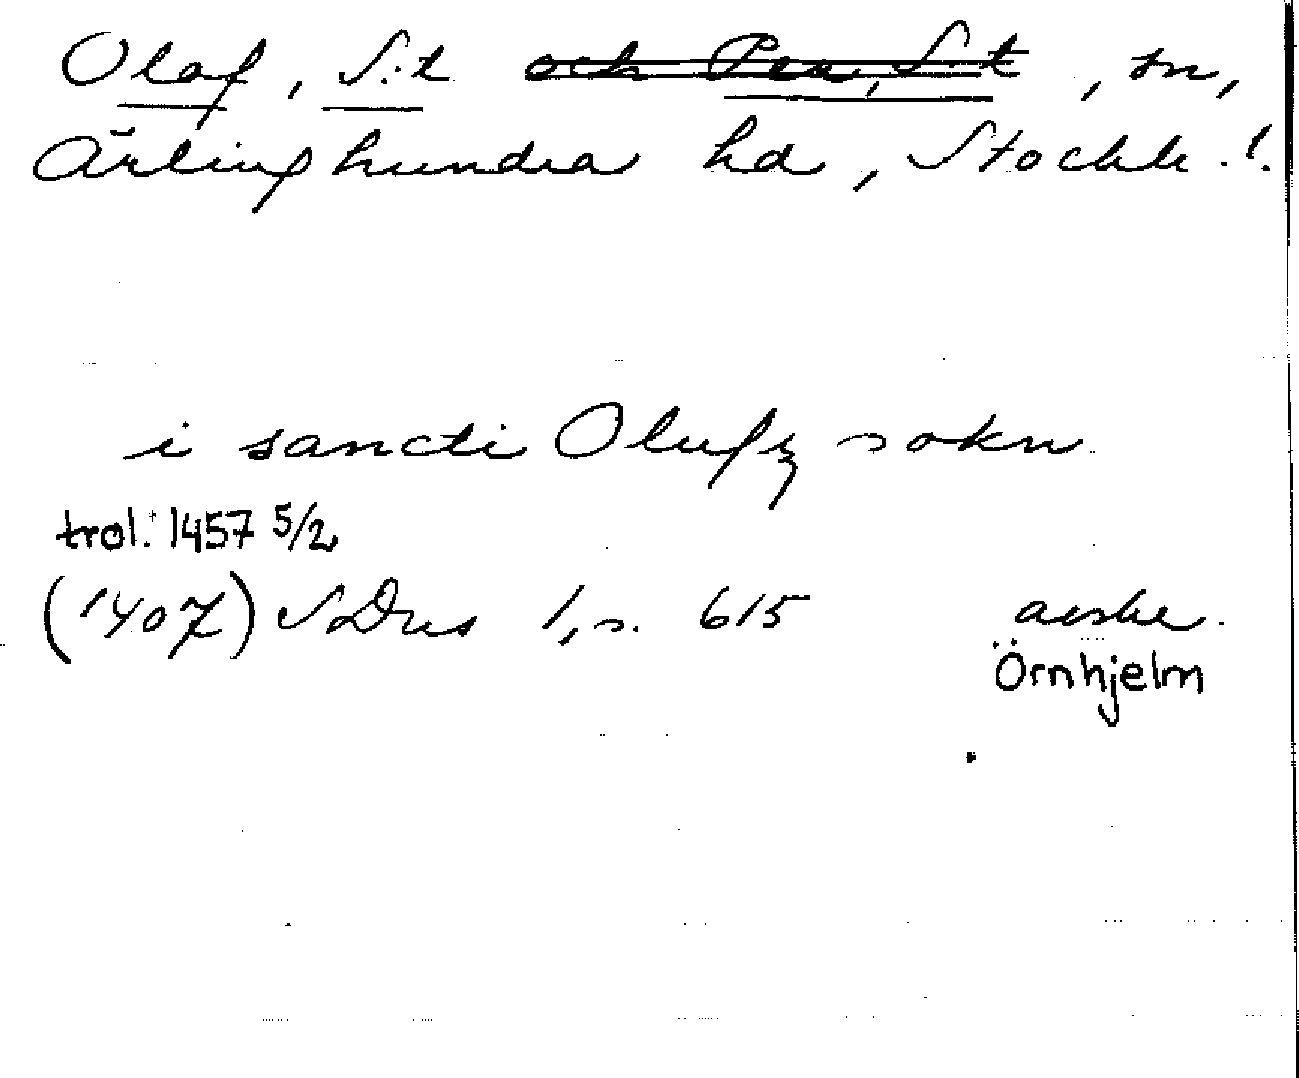 Olaf, S:t och Per, S:t, sn,
Ärlinghundra hd, Stockh. l.
i sancti Olufz sokn
trol. 1457 5/2
(1407) SvDns 1, s. 615 avskr.
Örnhjelm